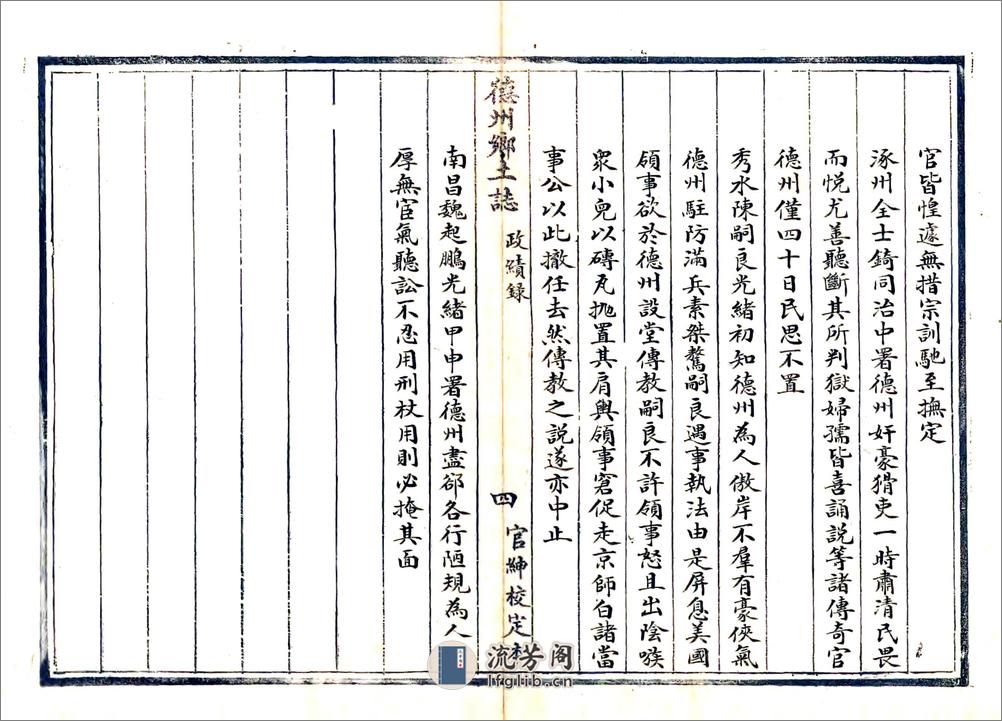 官皆惶遽無措宗訓馳至撫定
涿州全士錡同治中署德州奸豪猾吏一時肅清民畏
而悦尤善聽斷其所判獄婦孺皆喜誦説等諸傳奇官
德州僅四十日民思不置
秀水陳嗣良光緒初知德州為人傲岸不羣有豪俠氣
德州駐防滿兵素桀驁嗣良遇事執法由是屏息美國
領事欲於德州設堂傳教嗣良不許領事怒且出陰嗾
衆小兒以磚瓦抛置其肩輿領事窘促走京師白諸當
事公以此撤任去然傳教之説遂亦中止
德州鄉土誌 政績録 四 官紳校定本
南昌魏起鵬光緒甲申署德州盡郤各行陋規為人
厚無宦氣聽訟不忍用刑杖用則必掩其面
流芳阁
lfglib.cn